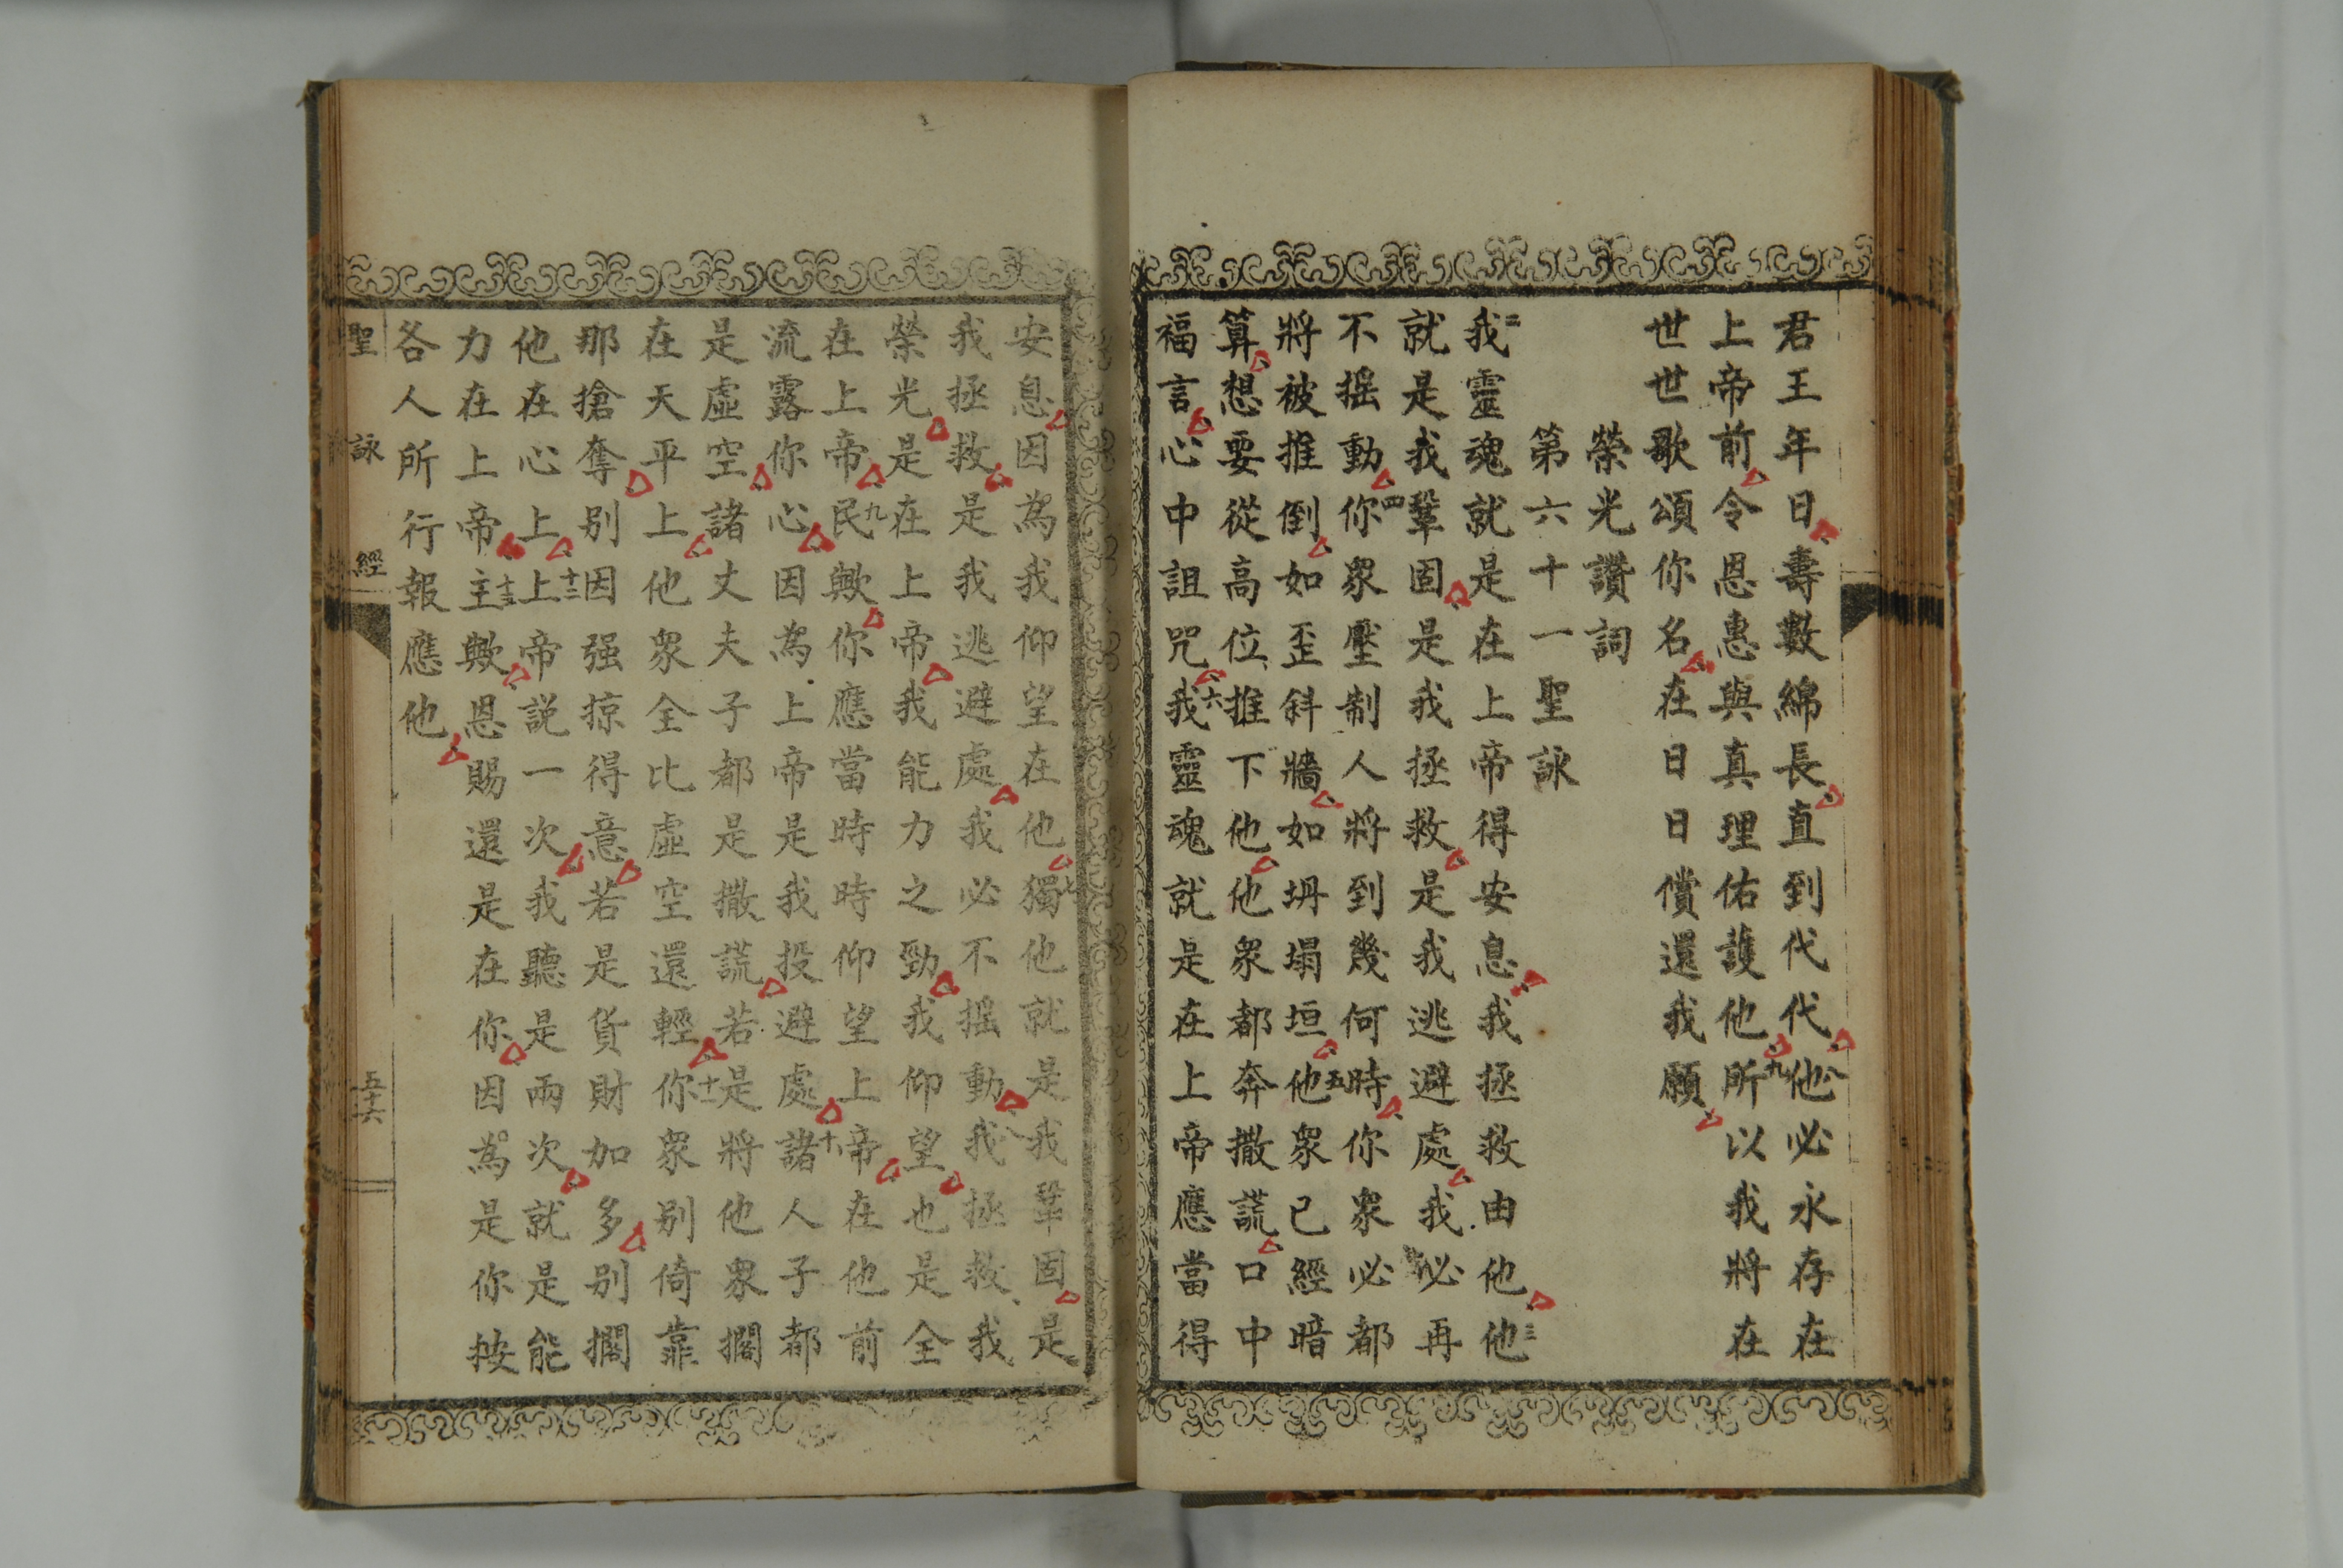 君王年日壽數綿長直到代代八他必永存在
上帝前令恩惠與真理佑護他九所以我將在
世世歌頌你名在日日償還我願
榮光讚詞
第六十一聖詠
二我靈魂就是在上帝得安息我拯救由他三他
就是我鞏固是我拯救是我逃避處我必再
不摇動四你眾壓制人將到幾何時你眾必都
將被推倒如歪斜牆如坍塌垣五他眾已經暗
算想要從高位推下他他眾都奔撒謊口中
福言心中詛咒六我靈魂就是在上帝應當得
安息因為我仰望在他七獨他就是我鞏固是
我拯救是我逃避處我必不摇動八我拯救我
榮光是在上帝我能力之勁我仰望也是全
在上帝九民歟你應當時時仰望上帝在他前
流露你心因為上帝是我投避處十諸人子都
是虛空諸丈夫子都是撒謊若是將他眾擱
在天平上他眾全比虛空還輕十一你眾别倚靠
那搶奪别因强掠得意若是貨財加多别擱
他在心上十二上帝説一次我聽是兩次就是能
力在上帝十三主歟恩賜還是在你因為是你按
各人所行報應他
聖詠經 五十六